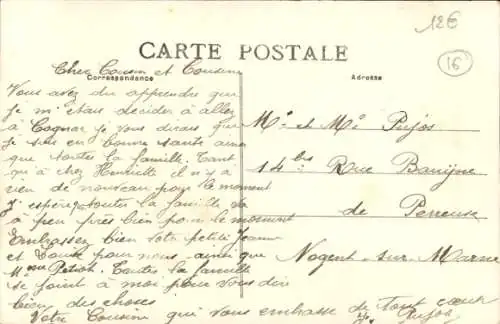 12€
16
CARTE POSTALE
Correspondance
Adresse
Cher Cousin et Cousine
Vous avez du apprendre que
je m'etais decider à aller
à Cognac je vous dirais que
je suis en bonne santé ainsi
que toutes la famille. Tant
qu'à chez Henriette il n'y a
rien de nouveau pour le moment
J'espère toutes la famille va
à peu près bien pour le moment
Embrassez bien votre petite Jeanne
et Louise pour nous ainsi que
Mme Toutes la famille
se joint à moi pour vous dire
bien des choses
Votre Cousine qui vous embrasse de tout cœur
Pujos
Mr et Me Pujos
14 bis Rue
de Perreuse
Nogent-sur-Marne